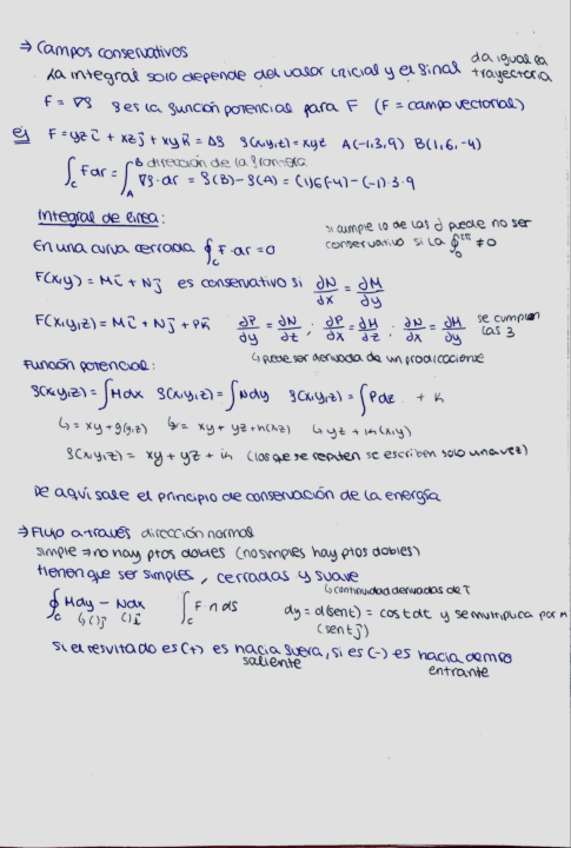 ⇒ Campos conservativos
La integral solo depende del valor inicial y el final da igual la trayectoria
F = ∇f f es la función potencial para F (F = campo vectorial)
ej F = yz i + xz j + xy k = Δf f(x,y,z) = xyz A(-1,3,9) B(1,6,-4)
∫_C F dr = ∫_A^B ∇f · dr = f(B) - f(A) = (1)6(-4) - (-1)·3·9
dirección de la frontera
Integral de línea:
si cumple lo de las ∂ puede no ser conservativo si la ∮_0^2π ≠ 0
En una curva cerrada ∮_C F · dr = 0
F(x,y) = M i + N j es conservativo si ∂N/∂x = ∂M/∂y
F(x,y,z) = M i + N j + P k ∂P/∂y = ∂N/∂z ; ∂P/∂x = ∂M/∂z ; ∂N/∂x = ∂M/∂y se cumplen las 3
↳ puede ser derivada de un prod/cociente
Función potencial:
f(x,y,z) = ∫Mdx f(x,y,z) = ∫Ndy f(x,y,z) = ∫Pdz + K
↳ = xy + g(y,z) ↳ = xy + yz + h(x,z) ↳ yz + k(x,y)
f(x,y,z) = xy + yz + k (las que se repiten se escriben solo una vez)
De aquí sale el principio de conservación de la energía
⇒ Flujo a través dirección normal
simple ⇒ no hay ptos dobles (no simples hay ptos dobles)
tienen que ser simples, cerradas y suave
↳ continuidad derivadas de T
∮_C Mdy - Ndx ∫_C F · n ds dy = d(sent) = cos t dt y se multiplica por M
↳( )j ( )i (sent j)
Si el resultado es (+) es hacia fuera, si es (-) es hacia dentro
saliente entrante